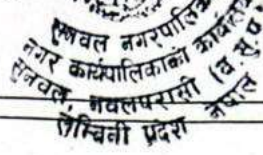 सुनवल नगरपालिका
नगर कार्यपालिकाको कार्यालय
सुनवल, नवलपरासी (ब.सु.प.
लुम्बिनी प्रदेश नेपाल